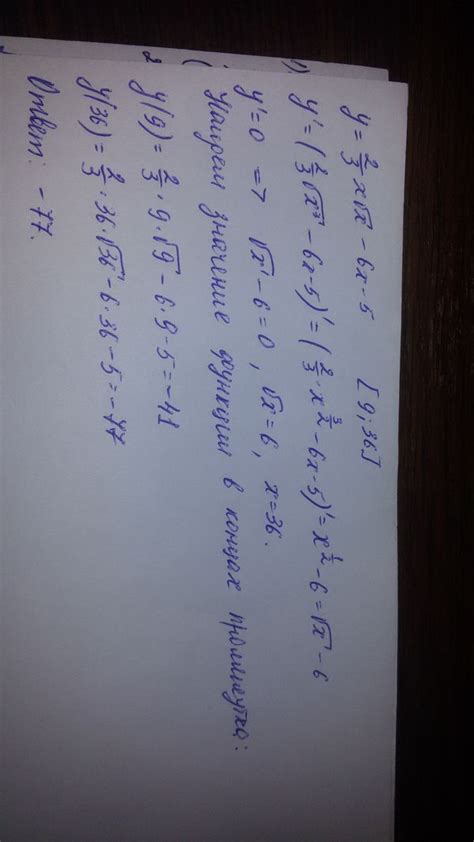 y = 2/3 x√x - 6x - 5 [9; 36]
y' = (2/3 √x³ - 6x - 5)' = (2/3 · x^(3/2) - 6x - 5)' = x^(1/2) - 6 = √x - 6
y' = 0 => √x - 6 = 0, √x = 6, x = 36.
Найдем значение функции в концах промежутка:
y(9) = 2/3 · 9 · √9 - 6 · 9 - 5 = -41
y(36) = 2/3 · 36 · √36 - 6 · 36 - 5 = -77
Ответ: -77.